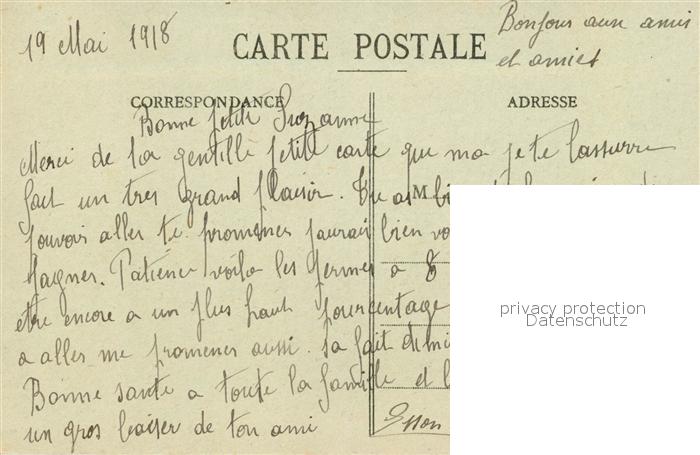 19 Mai 1918
Bonjour aux amis
et amies
CARTE POSTALE
CORRESPONDANCE
ADRESSE
Bonne petite Suzanne
Merci de ta gentille petite carte qui ma je te lassurre
fait un tres grand plaisir. Tu as
M
pouvoir aller te promener jaurai bien
Patience voila les permes a 8
etre encore a un plus haut pourcentage
a aller me promener aussi. sa fait
Bonne sante a toute la famille et
un gros baiser de ton ami
privacy protection
Datenschutz